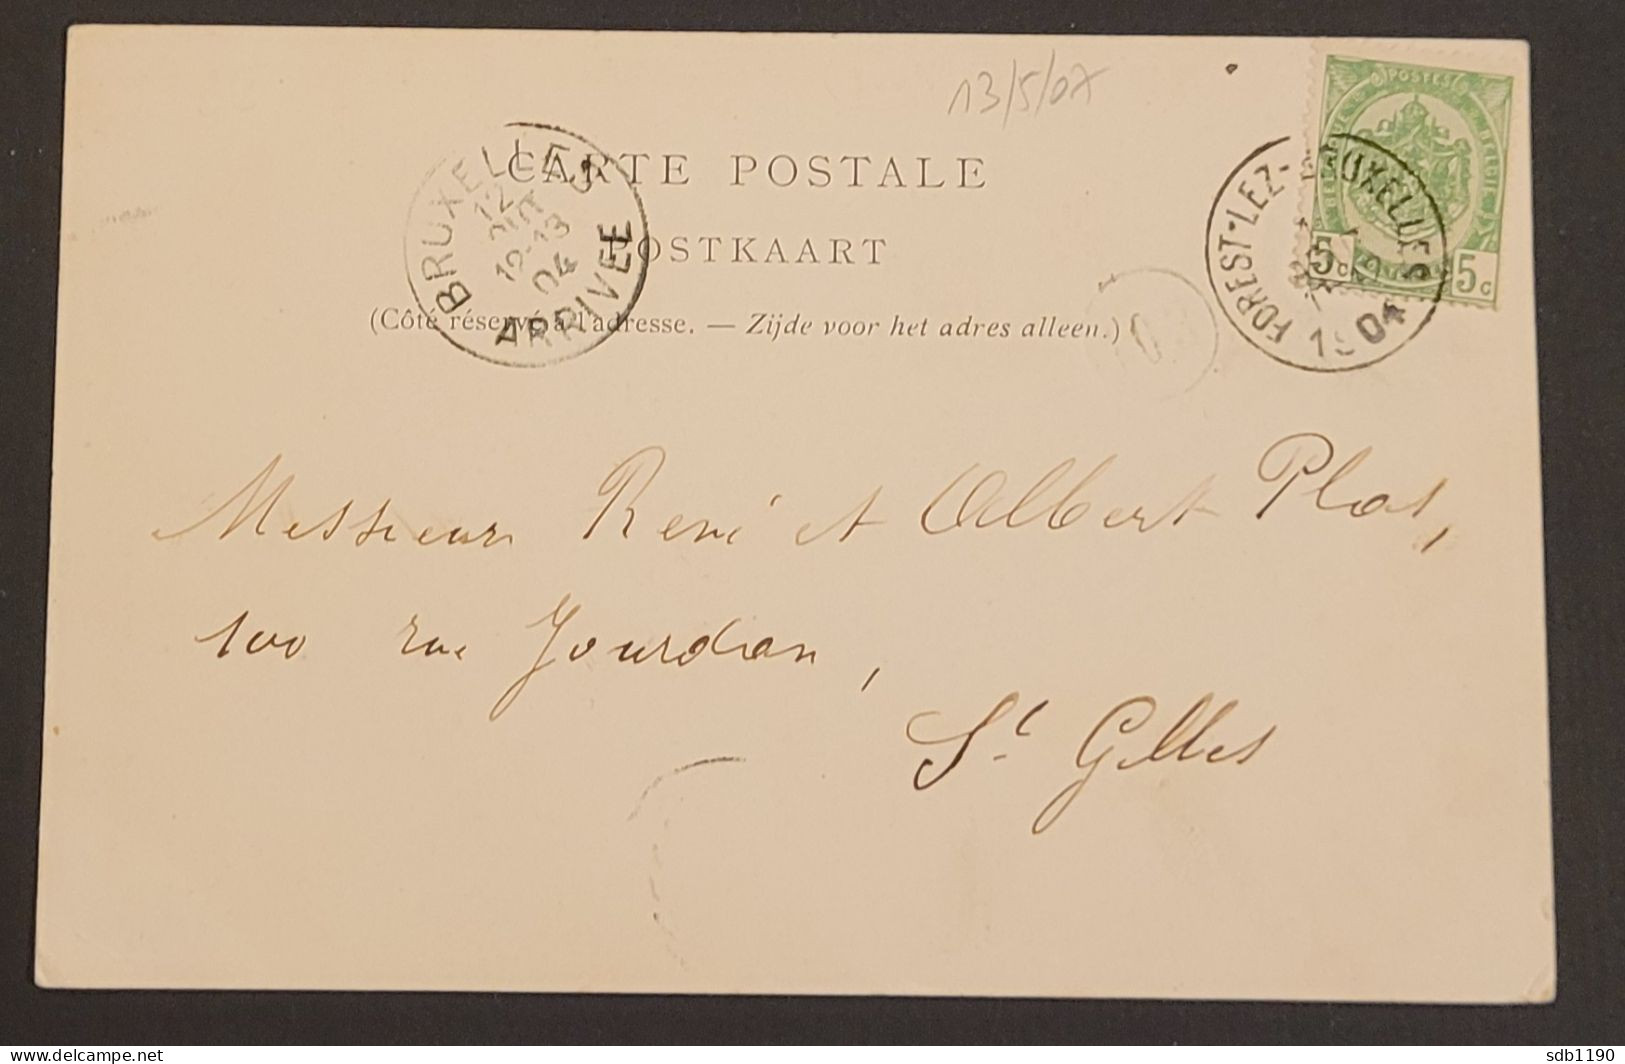 13/5/07
CARTE POSTALE
POSTKAART
(Côté réservé à l'adresse. — Zijde voor het adres alleen.)
BRUXELLES
12
AOUT
12-13
04
ARRIVÉE
FOREST-LEZ-BRUXELLES
1904
POSTES
BELGIQUE
BELGIE
5c
5c
Messieurs René et Albert Plas,
100 rue Jourdan,
St. Gilles
sdb1190